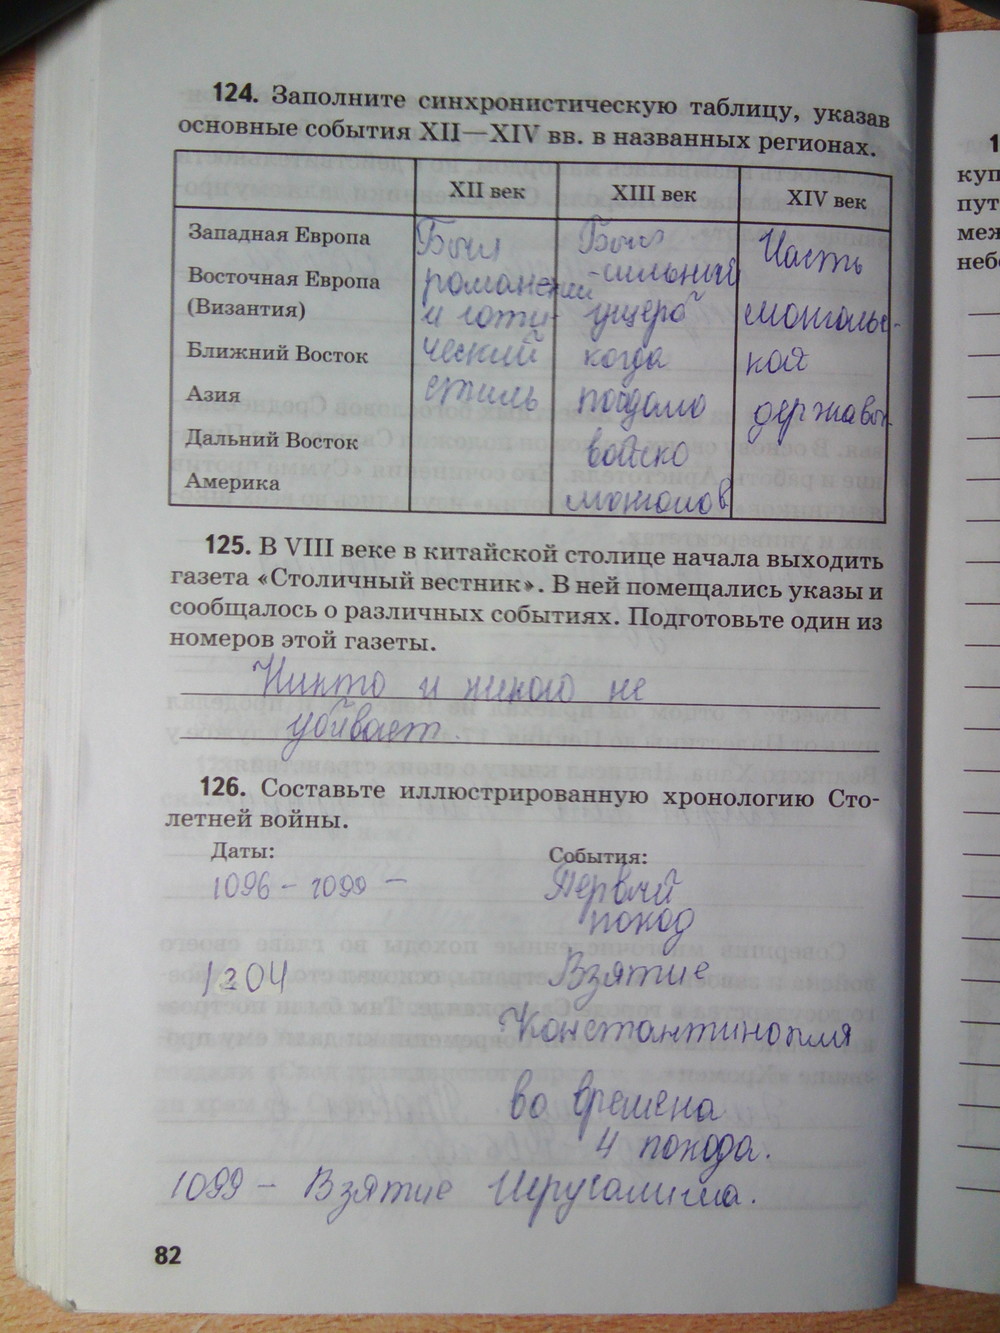 124. Заполните синхронистическую таблицу, указав
основные события XII—XIV вв. в названных регионах.
XII век XIII век XIV век
Западная Европа
Восточная Европа
(Византия)
Ближний Восток
Азия
Дальний Восток
Америка
Был
романский
и готи-
ческий
стиль
Был
-сильный
ущерб
когда
войско
монголов
Часть
монгольс-
кой
державы
125. В VIII веке в китайской столице начала выходить
газета «Столичный вестник». В ней помещались указы и
сообщалось о различных событиях. Подготовьте один из
номеров этой газеты.
Никто и никого не
убивает.
126. Составьте иллюстрированную хронологию Сто-
летней войны.
Даты: События:
1096 - 1099 - Первый
поход
1204 Взятие
Константинопля
во времена
4 похода.
1099 - Взятие Иерусалима.
82
1
куп
пут
меж
небе